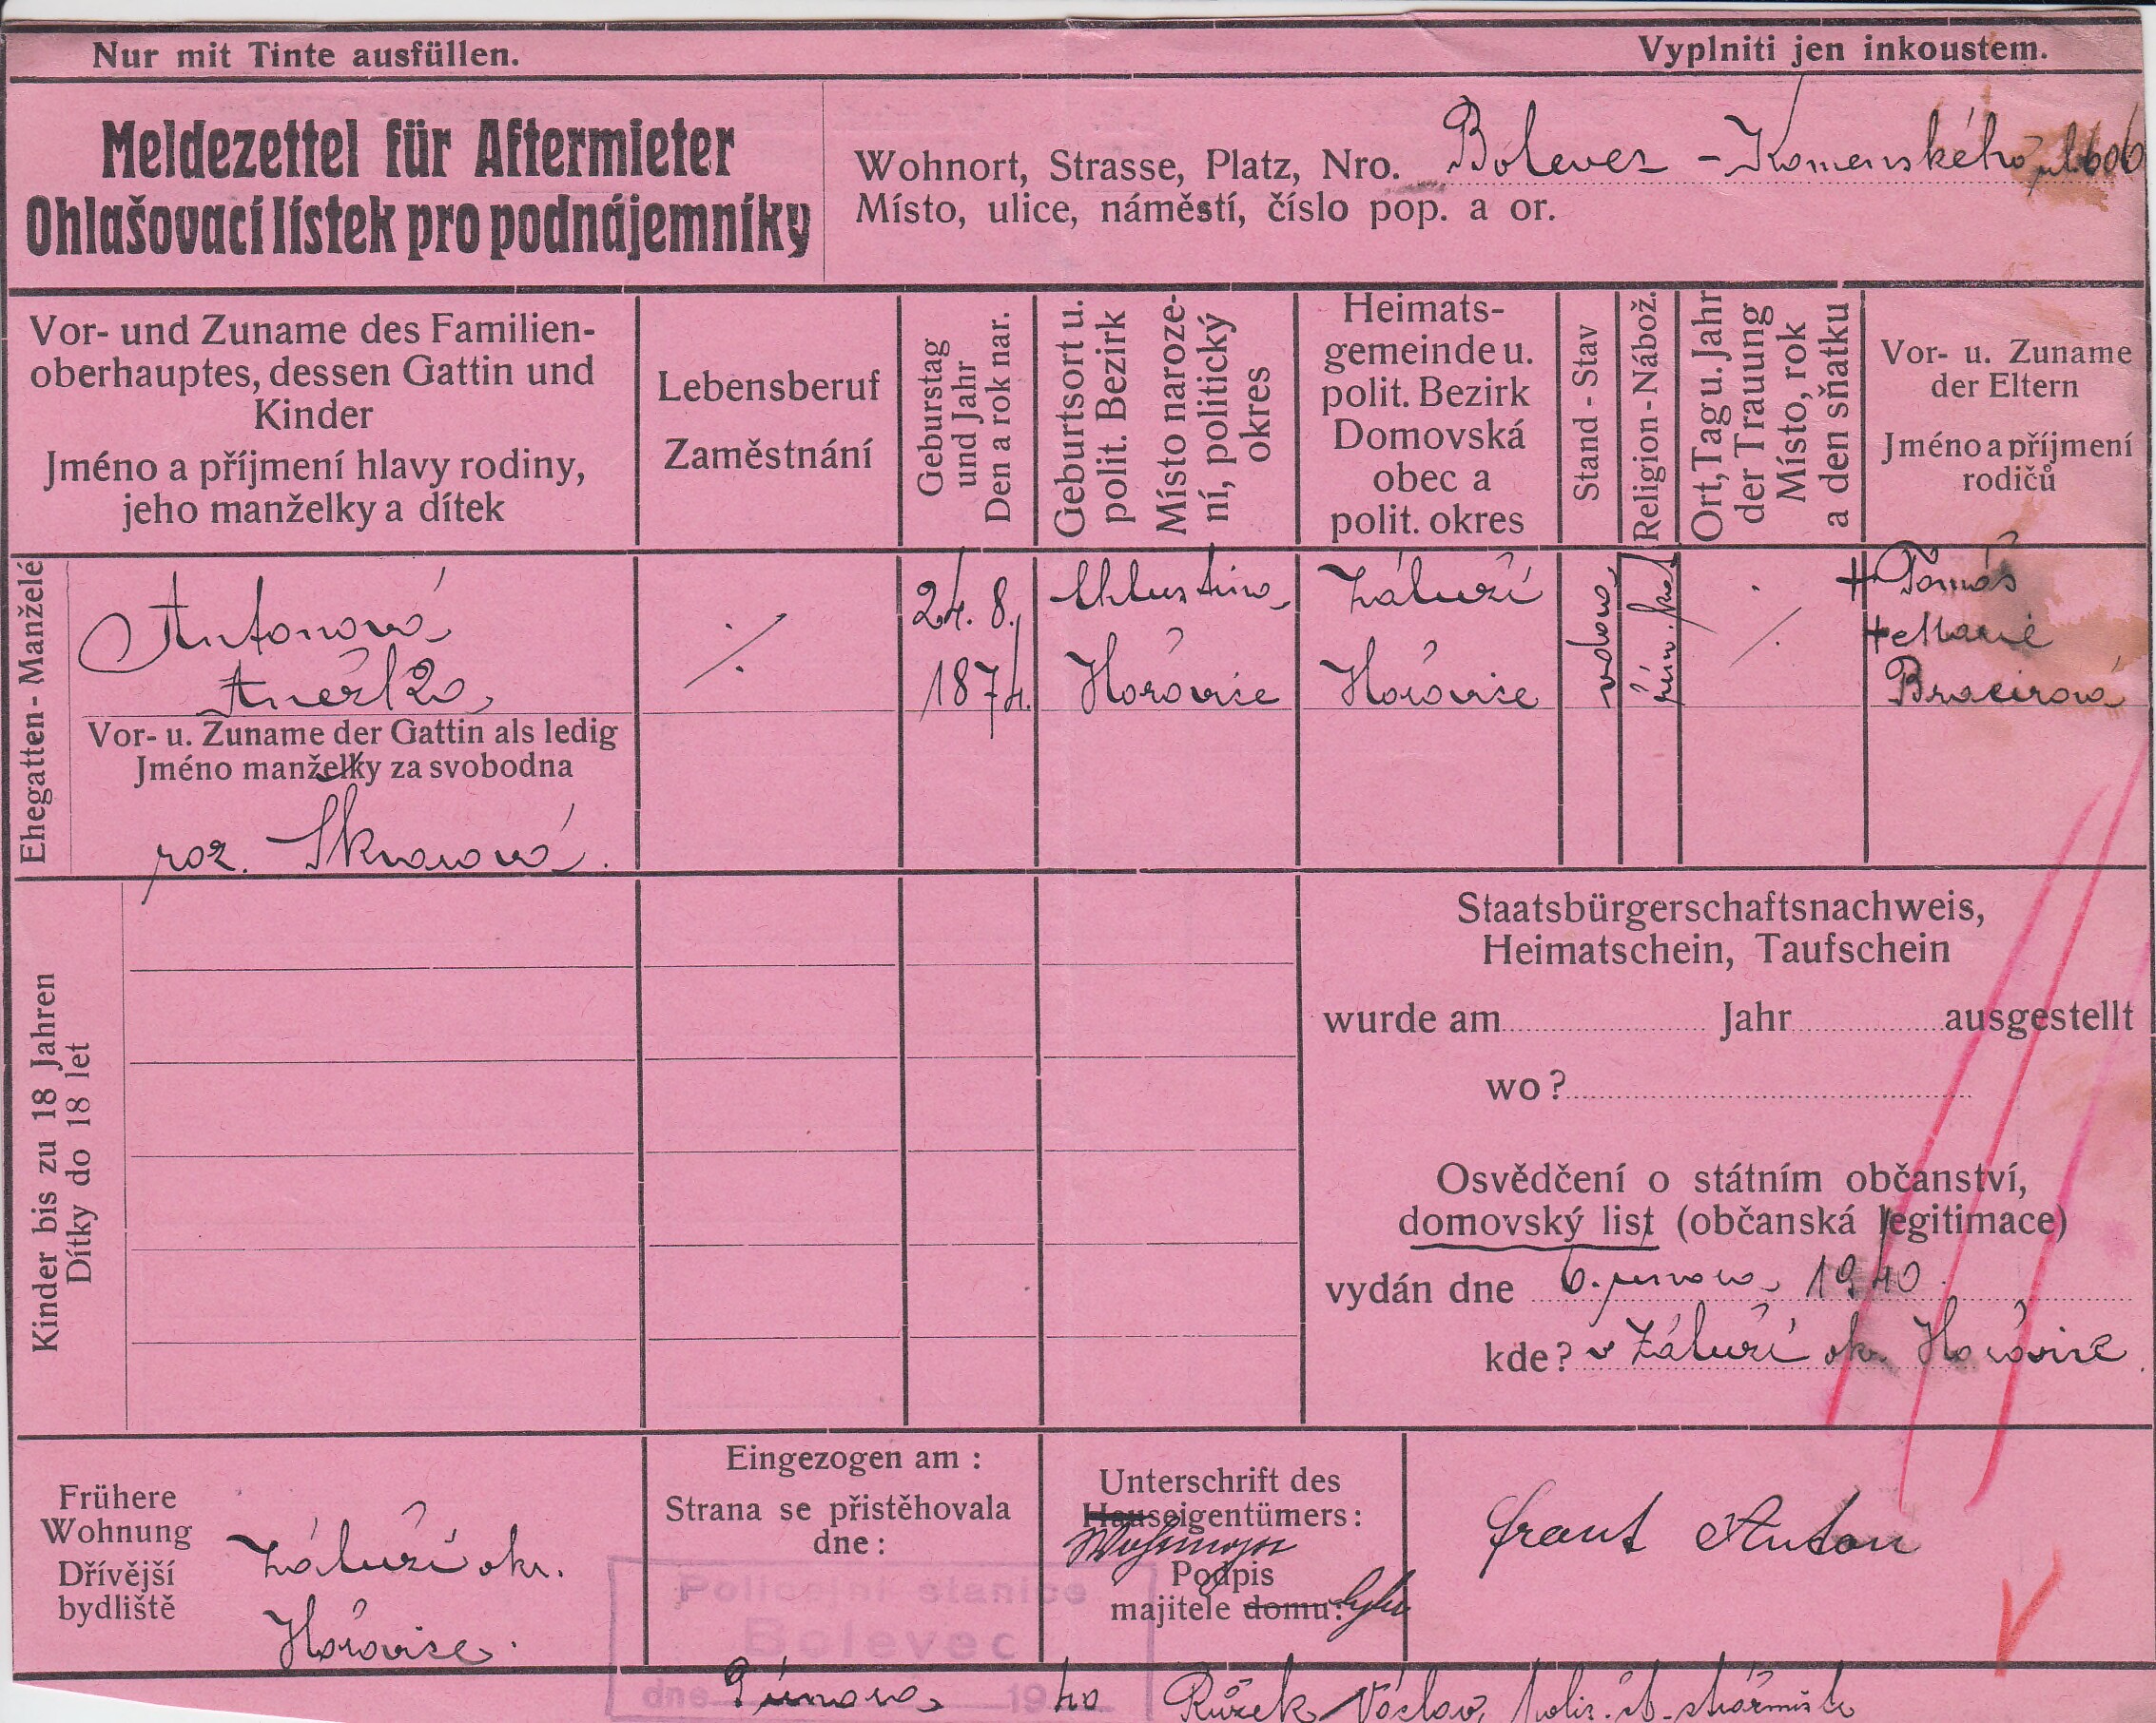 Nur mit Tinte ausfüllen.
Vyplniti jen inkoustem.
Meldezettel für Aftermieter
Ohlašovací lístek pro podnájemníky
Wohnort, Strasse, Platz, Nro. Bolevec - Komenského ul. 606
Místo, ulice, náměstí, číslo pop. a or.
Vor- und Zuname des Familien-
oberhauptes, dessen Gattin und
Kinder
Jméno a příjmení hlavy rodiny,
jeho manželky a dítek
Lebensberuf
Zaměstnání
Geburstag
und Jahr
Den a rok nar.
Geburtsort u.
polit. Bezirk
Místo naroze-
ní, politický
okres
Heimats-
gemeinde u.
polit. Bezirk
Domovská
obec a
polit. okres
Stand - Stav
Religion - Nábož.
Ort, Tag u. Jahr
der Trauung
Místo, rok
a den sňatku
Vor- u. Zuname
der Eltern
Jméno a příjmení
rodičů
Ehegatten - Manželé
Antonová
Anežka
24. 8.
1874.
Chlustina
Hořovice
Záluží
Hořovice
vdova
řím. kat.
Tomáš
Marie
Vor- u. Zuname der Gattin als ledig
Jméno manželky za svobodna
roz.
Kinder bis zu 18 Jahren
Dítky do 18 let
Staatsbürgerschaftsnachweis,
Heimatschein, Taufschein
wurde am Jahr ausgestellt
wo?
Osvědčení o státním občanství,
domovský list (občanská legitimace)
vydán dne 6. února 1940
kde? v Záluží okr. Hořovice
Frühere
Wohnung
Dřívější
bydliště
Záluží okr.
Hořovice.
Eingezogen am :
Strana se přistěhovala
dne :
Unterschrift des
Hauseigentümers :
Wohnungs
Podpis
majitele domu: bytu
Frant Anton
Policejní stanice
Bolevec
dne února 1940
Růžek Václav, polic. št. strážmistr